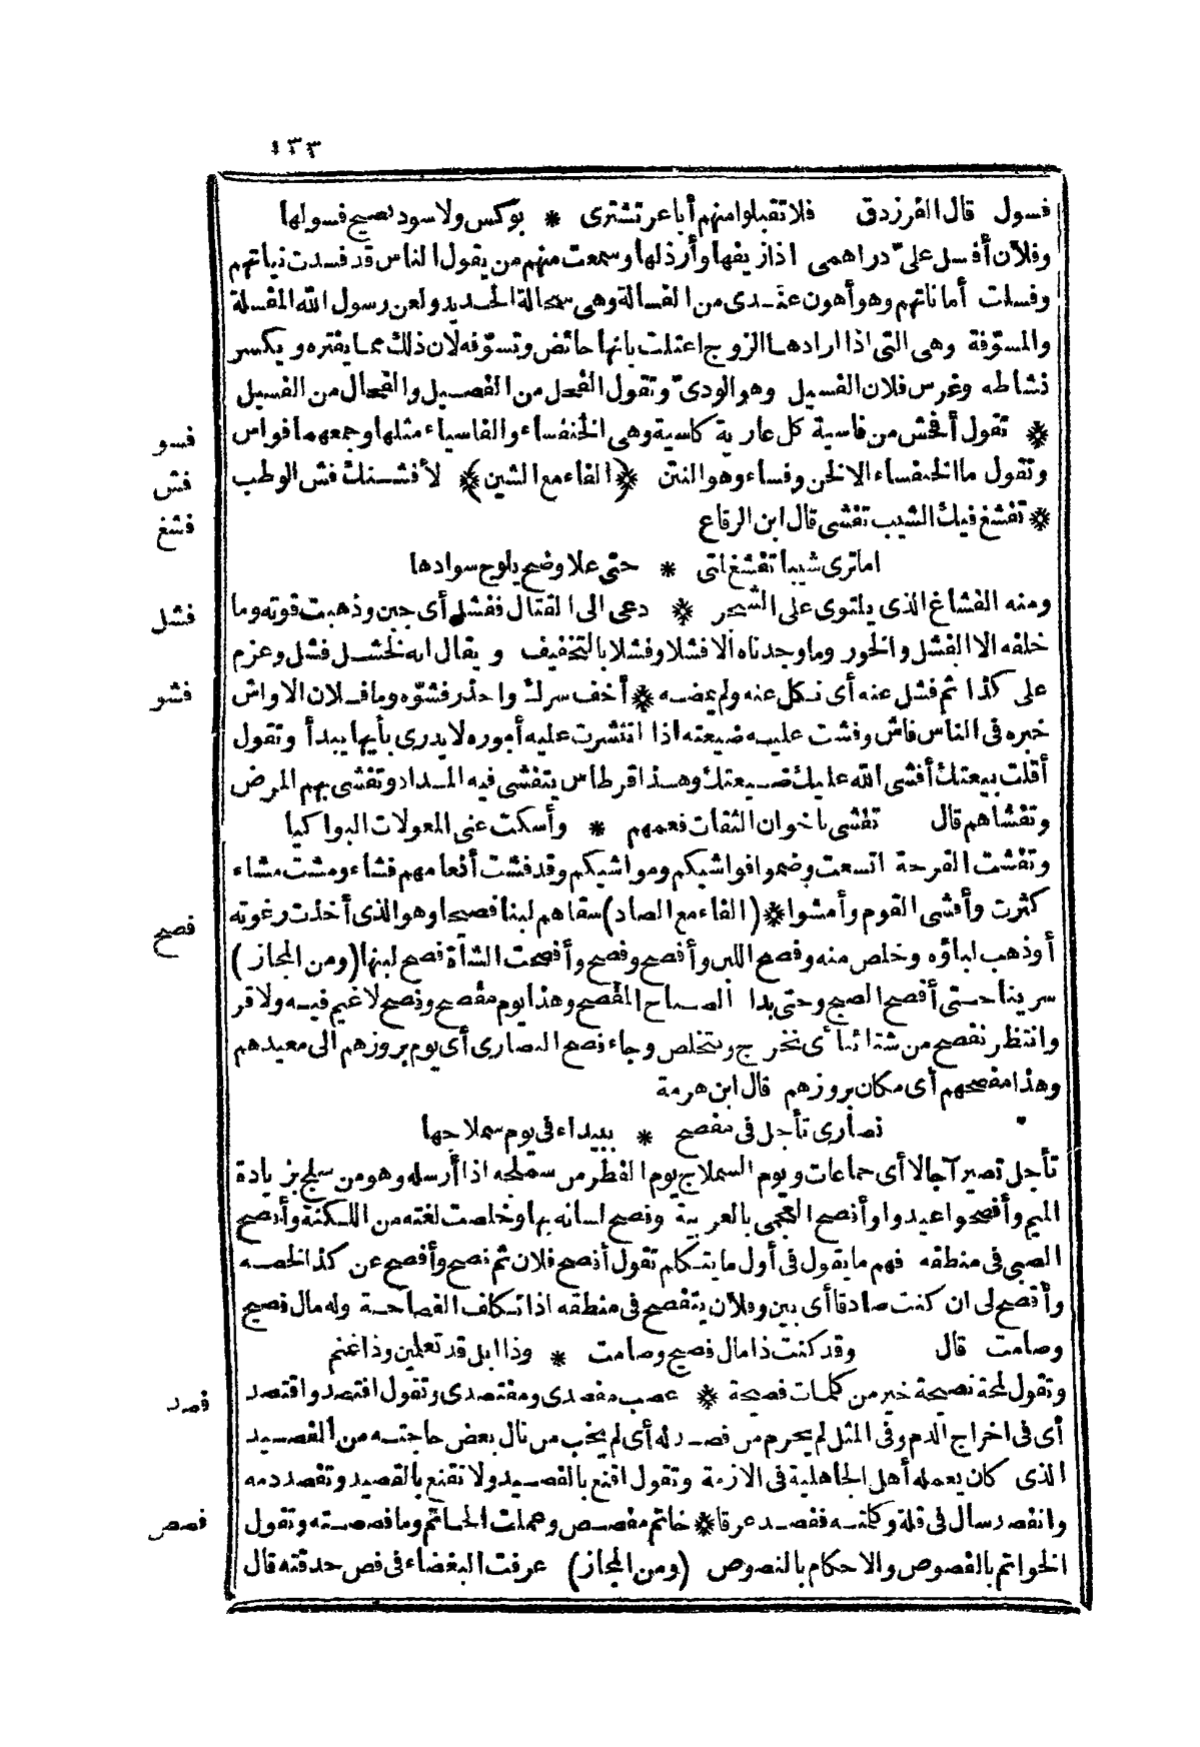 ١٣٣
فسول قال الفرزدق فلا تقبلوا منهم أباعر تشترى * بوكس ولا سود تصيح فسولها
وفلان أفسل علىّ دراهمى اذا زيفها وأرذلها وسمعت منهم من يقول الناس قد فسدت نياتهم
وفسلت أماناتهم وهو أهون عندى من الفسالة وهى سحالة الحديد ولعن رسول الله المفسلة
والمسوّفة وهى التى اذا ارادها الزوج اعتلت بانها حائض وتسوّفه لان ذلك مما يفتره ويكسر
نشاطه وغرس فلان الفسيل وهو الودىّ وتقول الفحل من الفصيل والفحال من الفسيل
فسو
* تقول أفحش من فاسية كل عارية كاسية وهى الخنفساء والفاسياء مثلها وجمعهما فواس
فش
وتقول ما الخنفساء الا لخن وفساء وهو النتن * (الفاء مع الشين) * لأفشنك فش الوطب
فشغ
* تفشغ فيك الشيب تفشى قال ابن الرقاع
اما ترى شيبا تفشغ لتى * حتى علا وضح يلوح سوادها
فشل
ومنه الفشاغ الذى يلتوى على الشجر * دعى الى القتال ففشل أى جبن وذهبت قوته وما
خلقه الا الفشل والخور وما وجدناه الا فشلا وفشلا بالتخفيف ويقال انه لخشل فشل وعزم
فشو
على كذا ثم فشل عنه أى نكل عنه ولم يمضه * أخف سرك واحذر فشوّه وما فلان الا واش
خبره فى الناس فاش وفشت عليه ضيعته اذا انتشرت عليه أموره لا يدرى بأيها يبدأ وتقول
أقلت بيعتك أفشى الله عليك ضيعتك وهذا قرطاس يتفشى فيه المداد وتفشى بهم المرض
وتفشاهم قال تفشى باخوان الثقات فعمهم * وأسكت عنى المعولات البواكيا
وتفشت القرحة اتسعت وضموا فواشيكم ومواشيكم وقد فشت أنعامهم فشاء ومشت مشاء
فصح
كثرت وأفشى القوم وأمشوا * (الفاء مع الصاد) سقاهم لبنا فصيحا وهو الذى أخذت رغوته
أو ذهب لباؤه وخلص منه وفصح اللبن وأفصح وفصح وأفصحت الشاة فصح لبنها (ومن المجاز)
سرينا حتى أفصح الصبح وحتى بدا الصباح المفصح وهذا يوم مفصح وفصح لا غيم فيه ولا قر
وانتظر نفصح من شتائنا أى نخرج ونتخلص وجاء فصح النصارى أى يوم بروزهم الى معيدهم
وهذا مفصحهم أى مكان بروزهم قال ابن هرمة
نصارى تأجل فى مفصح * ببيداء فى يوم سملاجها
تأجل تصير آجالا أى جماعات ويوم السملاج يوم الفطر من سملجه اذا أرسله وهو من سلج بزيادة
الميم وأفصحوا عيدوا وأفصح العجمى بالعربية وفصح لسانه بها وخلصت لغته من اللكنة وأفصح
الصبى فى منطقه فهم ما يقول فى أول ما يتكلم تقول أفصح فلان ثم فصح وأفصح عن كذا لخصه
وأفصح لى ان كنت صادقا أى بين وفلان يتفصح فى منطقه اذا تكلف الفصاحة وله مال فصيح
وصامت قال وقد كنت ذا مال فصيح وصامت * وذا ابل قد تعلمين وذا غنم
فصد
وتقول لمحة نصيحة خير من كلمات فصيحة * عصب مفصدى ومفتصدى وتقول افتصد واقتصد
أى فى اخراج الدم وفى المثل لم يحرم من فصد له أى لم يخب من نال بعض حاجته من الفصيد
الذى كان يعمله أهل الجاهلية فى الازمة وتقول اقنع بالفصيد ولا تقنع بالقصيد وتفصد دمه
فصص
وانفصد سال فى قلة وكلمته ففصد عرقا * خاتم مفصص وعملت الخاتم وما فصصته وتقول
الخواتم بالفصوص والاحكام بالنصوص (ومن المجاز) عرفت البغضاء فى فص حدقته قال